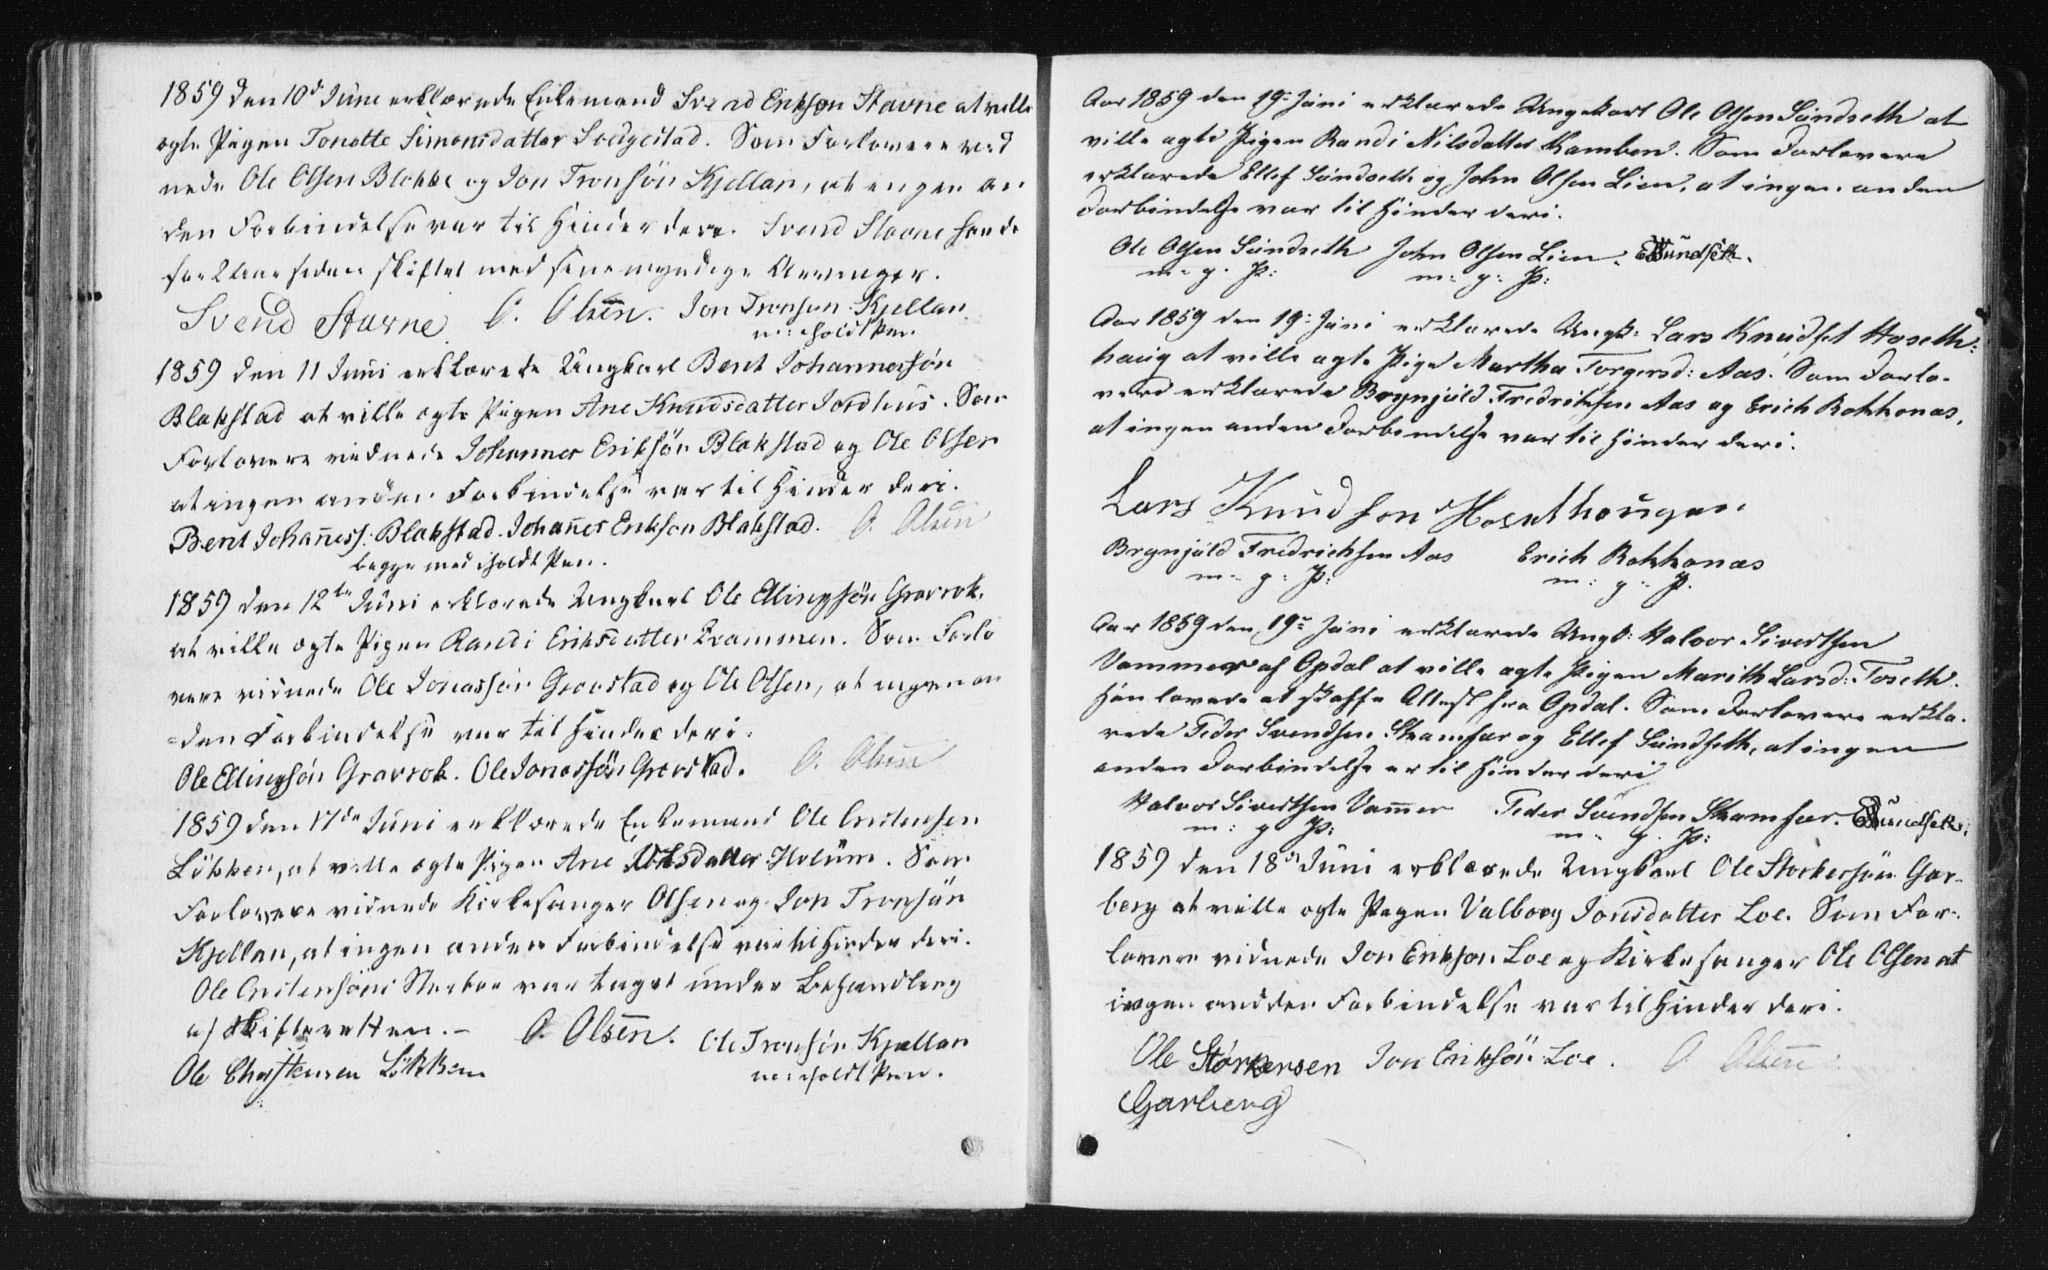 1859 den 10de June erklærede Enkemand Svend Erikson Stavne at ville
ægte Pigen Tonette Simonsdatter Solgestad. Som Forlovere vid
nede Ole Olsen Blokke og Jon Tronsön Kjellan, at engen an
den Forbindelse var til Hinder deri. Svend Stavne havde
for Lænsiden skiftet med sine myndige Arvinger.
Svend Stavne. O. Olsen. Jon Tronsen Kjellan
m: holdt Pen
1859 den 11 Juni erklærede Ungkarl Bent Johannessön
Blakstad at ville ægte Pigen Ane Knudsdatter Jordhus. Som
Forlovere vidnede Johannes Eriksön Blakstad og Ole Olsen
at ingen anden Forbindelse var til Hinder deri.
Bent Johaness: Blakstad. Johanes Erikson Blakstad. O. Olsen
begge med holdt Pen.
1859 den 12te Juni erklærede Ungkarl Ole Ellingsön Gravrok.
at ville ægte Pigen Randi Eriksdatter Krammen. Som Forlo
vere vidnede Ole Jonassön Grovstad og Ole Olsen, at ingen an
=den Forbindelse var til Hinder deri.
Ole Ellingsön Gravrok. Ole Jonassön Grovstad. O. Olsen
1859 den 17de Juni erklærede Enkemand Ole Cristensen
Lökken, at ville ægte Pigen Ane Olsdatter Holum. Som
Forlovere vidnede Kirkesanger Olsen og Jon Tronsön
Kjellan, at ingen anden Forbindelse var til Hinder deri.
Ole Cristensöns Sterboe var taget under Behandling
af Skifteretten. – O. Olsen. Ole Tronsön Kjellan
Ole Christensen Lökken m: holdt Pen.
Aar 1859 den 19: Juni erklærede Ungekarl Ole Olsen Sundseth at
ville ægte Pigen Randi Nilsdatter Kamben. Som Forlovere
erklærede Ellef Sundseth og John Olsen Lien, at ingen anden
Forbindelse var til Hinder deri.
Ole Olsen Sundseth John Olsen Lien. E Sundseth.
m. g. P: m: g: P:
Aar 1859 den 19: Juni erklærede Ungk: Lars Knudset Hoseth:
haug at ville ægte Pige Martha Torgersd: Aas. Som Forlo-
vere erklærede Brynjuld Fredrichsen Aas og Erich Rokkonas,
at ingen anden Forbindelse var til Hinder deri.
Lars Knudson Hosethougen
Brynjuld Fredrichsen Aas Erich Rokkonas
m: g: P: m: g: P.
Aar 1859 den 19de Juni erklærede Ungk: Halvor Sivertsen
Vammer af Opdal at ville ægte Pigen Marith Larsd: Foseth.
Han lovede at skaffe Attest fra Opdal. Som Forlovere erklæ-
rede Peder Svendsen Skamfær og Ellef Sundseth, at ingen
anden Forbindelse er til Hinder deri
Halvor Sivertsen Vamer Peder Svendsen Skamfær. E Sundseth.
m: g: P: m: g. P:
1859 den 18de Juni erklærede Ungkarl Ole Storkersön Gar-
berg at ville ægte Pigen Valborg Jonsdatter Loe. Som For-
lovere vidnede Jon Erikson Loe og Kirkesanger Ole Olsen at
ingen andden Forbindelse var til Hinder deri.
Ole Størkersen Jon Eriksön Loe. O. Olsen
Garberg